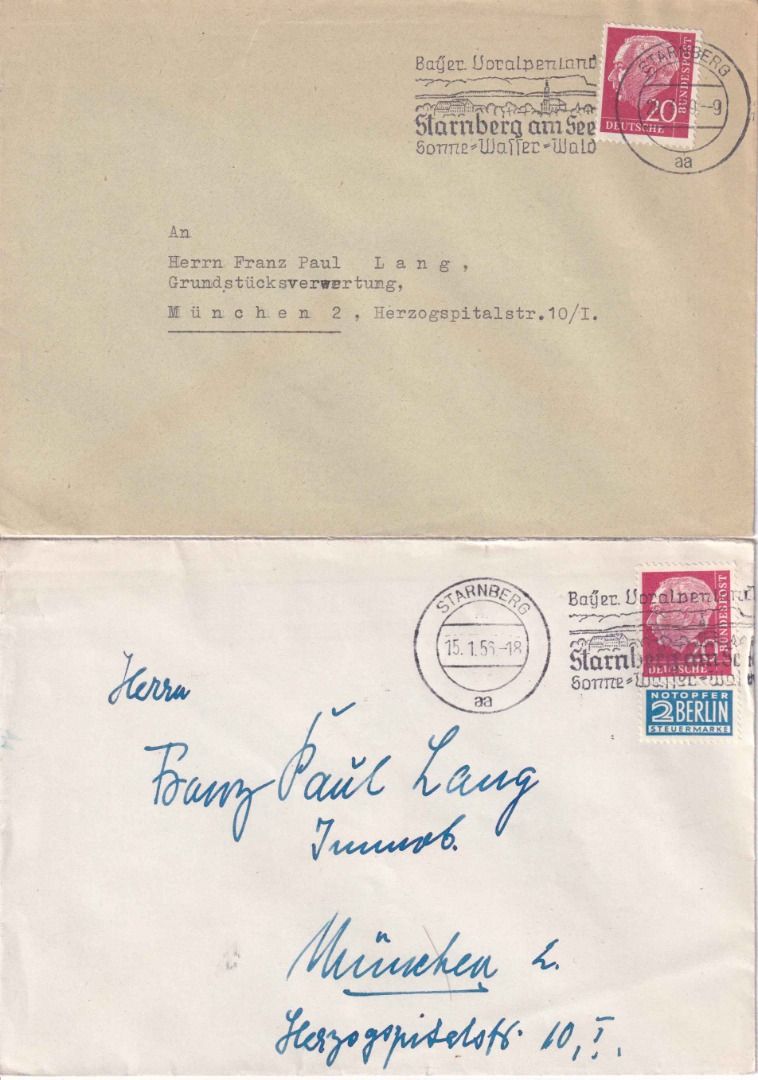 Bayer. Voralpenland
Starnberg am See
Sonne-Wasser-Wald
20
DEUTSCHE
BUNDESPOST
STARNBERG
-9
aa
An
Herrn Franz Paul L a n g ,
Grundstücksverwertung,
M ü n c h e n 2 , Herzogspitalstr.10/I.
STARNBERG
15.1.56-18
aa
Bayer. Voralpenland
Starnberg am See
Sonne-Wasser-Wald
20
DEUTSCHE
BUNDESPOST
NOTOPFER
2 BERLIN
STEUERMARKE
Herrn
Franz Paul Lang
Immob.
München 2.
Herzogspitalstr. 10, I.